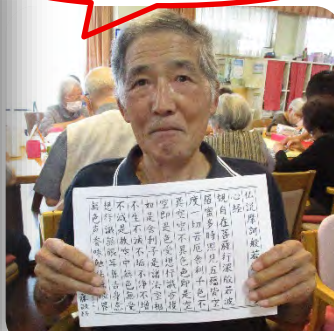 仏説摩訶般若
心経
観自在菩薩行深般若波
羅蜜多時照見五蘊皆空
度一切苦厄舎利子色不
異空空不異色色即是空
空即是色受想行識亦復
如是舎利子是諸法空相
不生不滅不垢不浄不増
不減是故空中無色無受
想行識無眼耳鼻舌身意
無色声香味触法無眼界